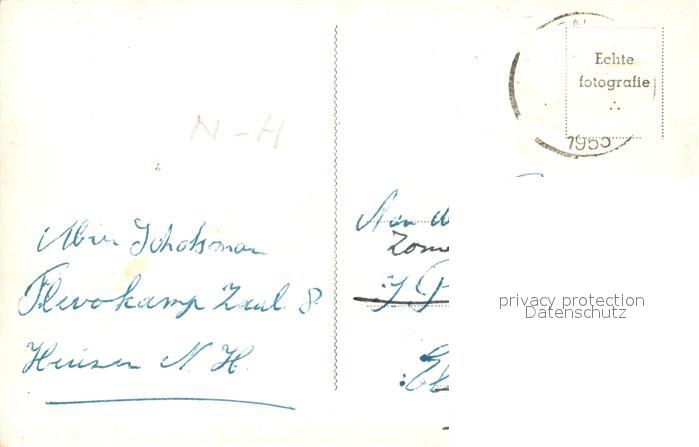 Echte
fotografie
1955
N-H
Aan
Schotsman
Flevokamp Zaal 8
Huizen N. H.
privacy protection
Datenschutz